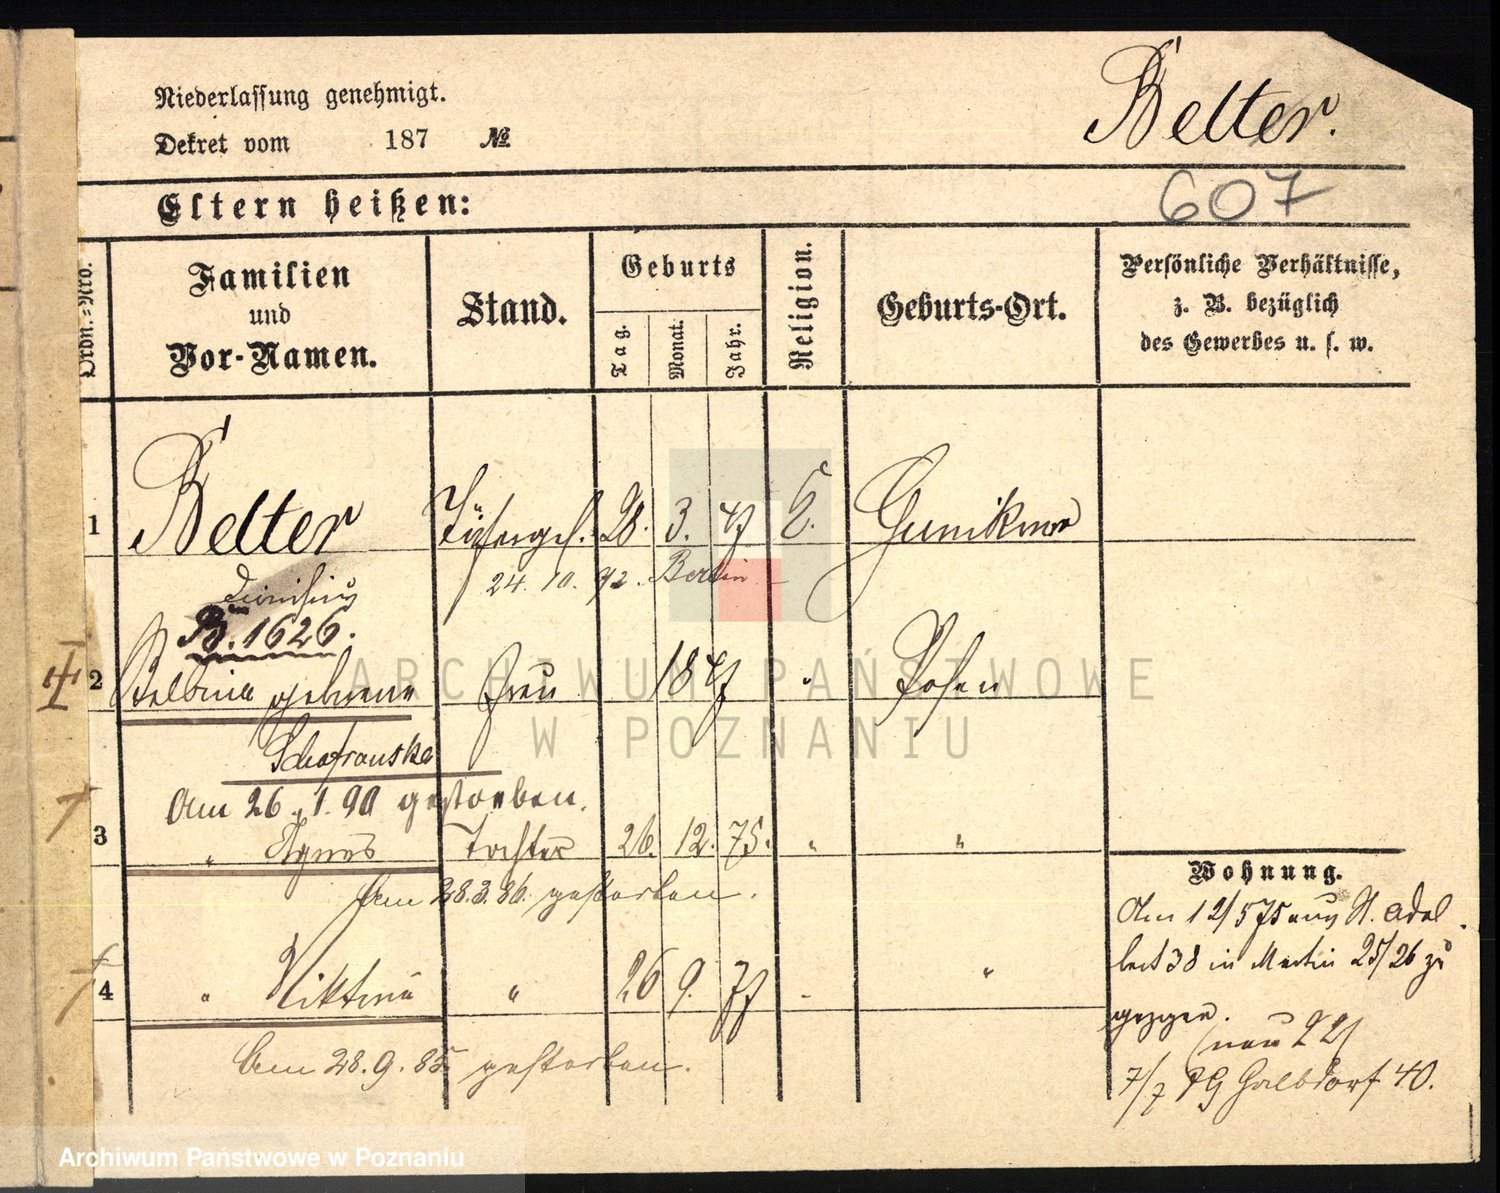 Niederlassung genehmigt.
Dekret vom 187 №
Belter.
607
Eltern heißen:
Ordn.-Nro.
Familien
und
Vor-Namen.
Stand.
Geburts
Tag.
Monat.
Jahr.
Religion.
Geburts-Ort.
Persönliche Verhältnisse,
z. B. bezüglich
des Gewerbes u. s. w.
1 Belter 28. 3. 47
24. 10. 92. Berlin
B. 1626.
2 Balbina geborene Frau 1847 " Posen
Schafranska
Am 26.1.90 gestorben.
3 " Agnes Tochter 26. 12. 75. " "
Am 28.3.86. gestorben.
4 " " 26 9. 77 "
Am 28.9.85. gestorben.
Wohnung.
Am 12/5 75 aus St. Adal
bert 38 in Martin 25/26 zu
gezogen.
7/7 79 Halbdorf 40.
ARCHIWUM PAŃSTWOWE
W POZNANIU
Archiwum Państwowe w Poznaniu